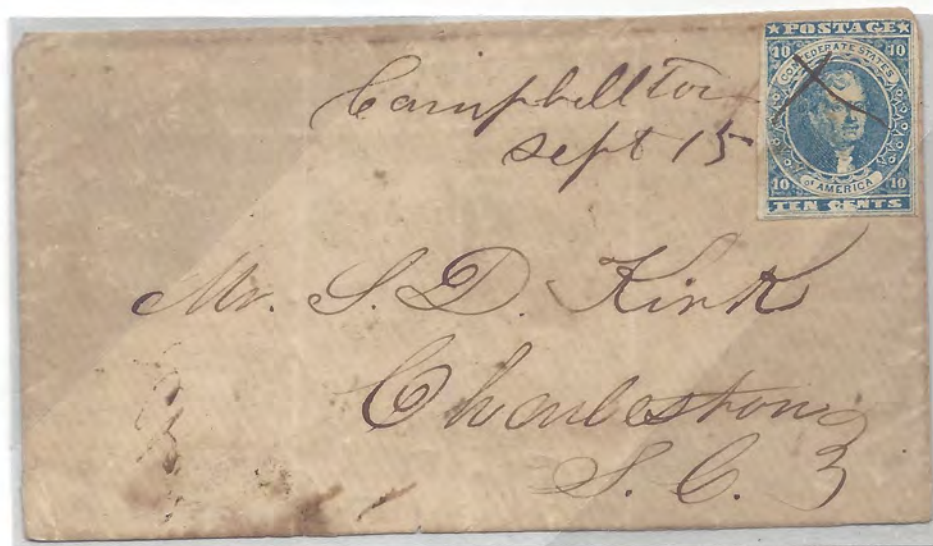 Campbellton
Sept 15
★POSTAGE★
10 10
CONFEDERATE STATES
OF AMERICA
10 10
TEN CENTS
Mr. S. D. Kirk
Charleston
S. C.